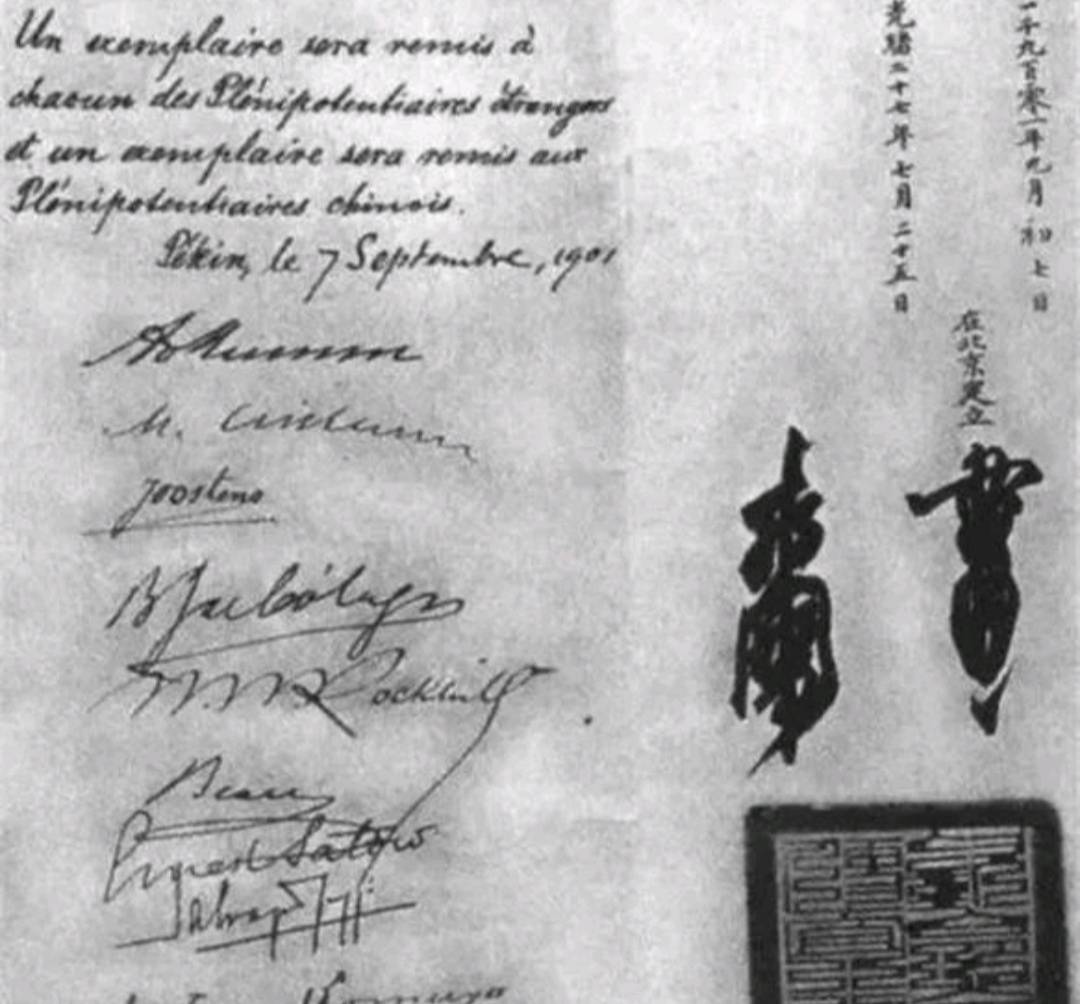 Un exemplaire sera remis à
chacun des Plénipotentiaires étrangers
et un exemplaire sera remis aux
Plénipotentiaires chinois.
Pékin, le 7 Septembre, 1901
A Mumm
M. Czikann
Joostens
B J de Cólogan
W W Rockhill
Beau
Ernest Satow
Salvago
Komura
一千九百零一年九月初七日
光緒二十七年七月二十五日
在北京定立